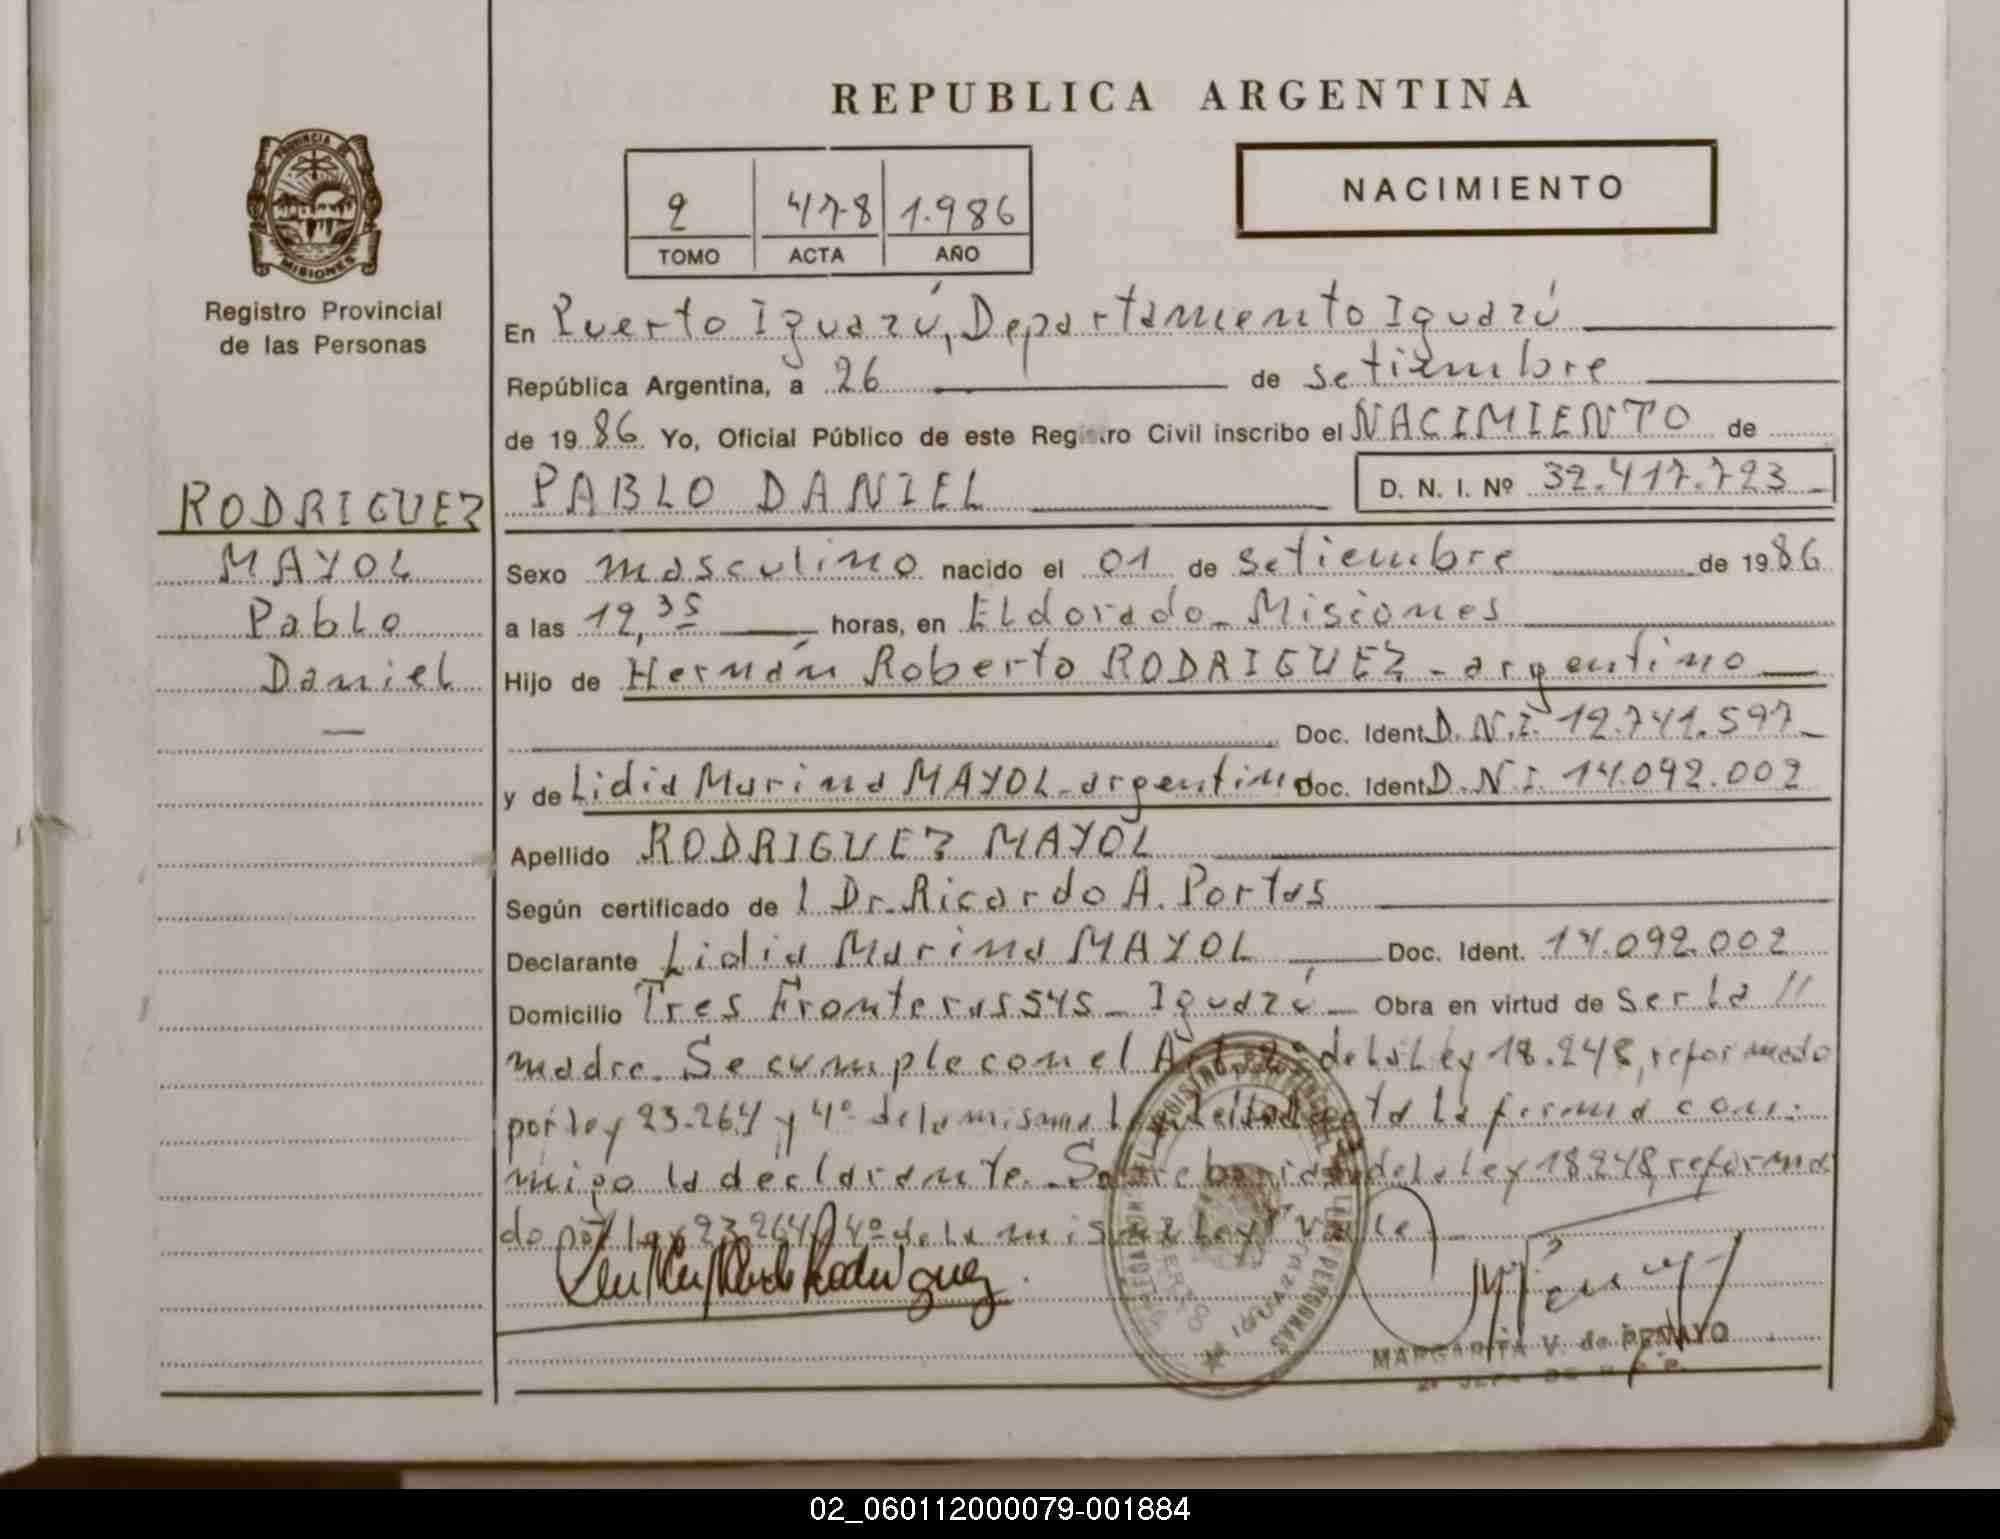 REPUBLICA ARGENTINA
PROVINCIA DE
MISIONES
Registro Provincial
de las Personas
NACIMIENTO
2 478 1.986
TOMO ACTA AÑO
En Puerto Iguazú, Departamiento Iguazú
República Argentina, a 26 de setiembre
de 1986 Yo, Oficial Público de este Registro Civil inscribo el NACIMIENTO de
RODRIGUEZ
MAYOL
Pablo
Daniel
PABLO DANIEL D. N. I. Nº 32.417.723
Sexo masculino nacido el 01 de setiembre de 1986
a las 12,35 horas, en Eldorado - Misiones
Hijo de Hernán Roberto RODRIGUEZ - argentino
Doc. Ident. D.N.I. 12.741.597
y de Lidia Marina MAYOL - argentina Doc. Ident. D.N.I. 14.092.002
Apellido RODRIGUEZ MAYOL
Según certificado de l Dr. Ricardo A. Portas
Declarante Lidia Marina MAYOL Doc. Ident. 14.092.002
Domicilio Tres Fronteras 545 - Iguazú - Obra en virtud de ser la //
madre. Se cumple con el Art. 2º de la Ley 18.248, reformado
por ley 23.264 y 4º de la misma Ley. Leída acta la firma con-
migo la declarante. - Sobre de la Ley 18248, reforma
do por ley 23.264 y 4º de la misma Ley: Vale
MARGARITA V. de PENAYO
02_060112000079-001884